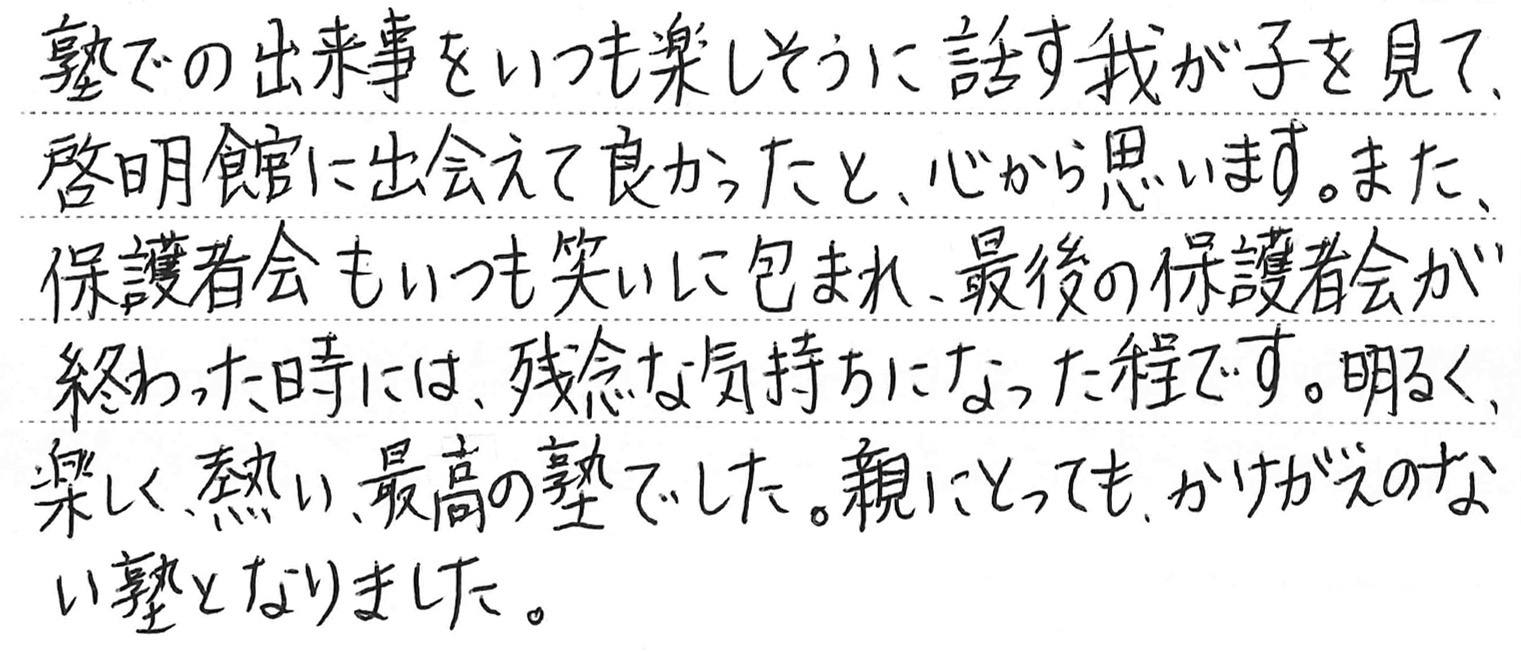 塾での出来事をいつも楽しそうに話す我が子を見て、
啓明館に出会えて良かったと、心から思います。また、
保護者会もいつも笑いに包まれ、最後の保護者会が
終わった時には、残念な気持ちになった程です。明るく、
楽しく、熱い、最高の塾でした。親にとっても、かけがえのな
い塾となりました。